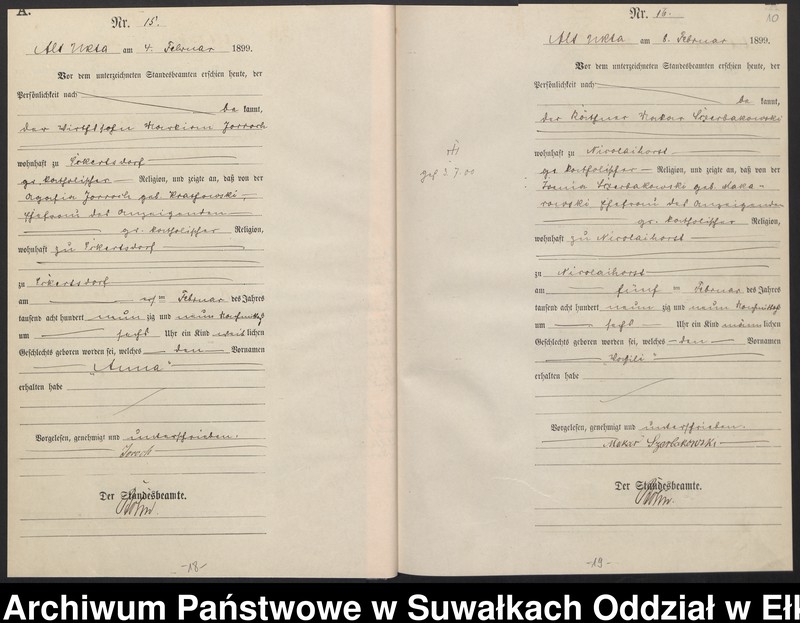 A.
Nr. 15.
Alt Ukta am 4. Februar 1899.
Vor dem unterzeichneten Standesbeamten erschien heute, der
Persönlichkeit nach
be kannt,
der Wirthssohn
wohnhaft zu Eckertsdorf
gr. katholischer Religion, und zeigte an, daß von der
geb.
Ehefrau des Anzeigenden
gr. katholischer Religion,
wohnhaft zu Eckertsdorf
zu Eckertsdorf
am ten Februar des Jahres
tausend acht hundert neun zig und neun Nachmittags
um sechs Uhr ein Kind weiblichen
Geschlechts geboren worden sei, welches den Vornamen
"Anna"
erhalten habe
Vorgelesen, genehmigt und unterschrieben.
Der Standesbeamte.
-18-
10
Nr. 16.
Alt Ukta am 8. Februar 1899.
Vor dem unterzeichneten Standesbeamten erschien heute, der
Persönlichkeit nach
be kannt,
der Käthner Makar Szerbakowski
wohnhaft zu Nicolaihorst
gr. katholischer Religion, und zeigte an, daß von der
Szerbakowski geb. Maka-
rowski Ehefrau des Anzeigenden
gr. katholischer Religion,
wohnhaft zu Nicolaihorst
zu Nicolaihorst
am fünf ten Februar des Jahres
tausend acht hundert neun zig und neun Nachmittags
um sechs Uhr ein Kind männlichen
Geschlechts geboren worden sei, welches den Vornamen
erhalten habe
Vorgelesen, genehmigt und unterschrieben.
Makar Szerbakowski
Der Standesbeamte.
-19-
Archiwum Państwowe w Suwałkach Oddział w Ełk